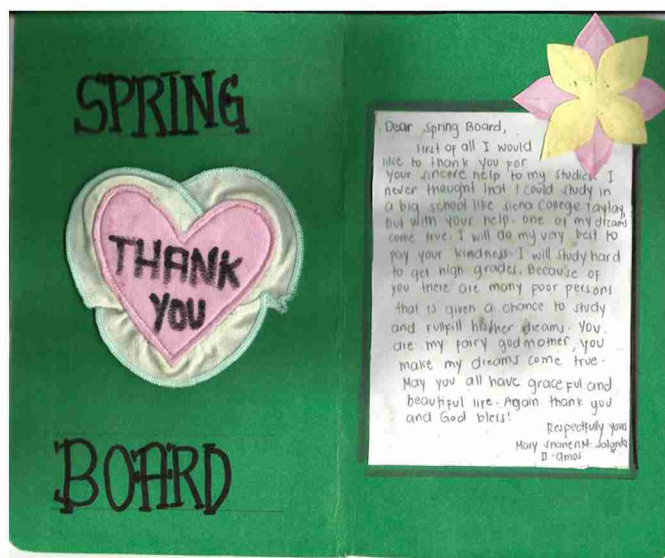 SPRING
THANK
YOU
BOARD
Dear Spring Board,
First of all I would
like to thank you for
your sincere help to my studies. I
never thought that I could study in
a big school like siena college taytay,
but with your help. one of my dreams
come true. I will do my very best to
pay your kindness. I will study hard
to get high grades. Because of
you there are many poor persons
that is given a chance to study
and fullfill his/her dreams. You
are my fairy godmother, you
make my dreams come true.
May you all have graceful and
beautiful life. Again thank you
and God bless!
Respectfully yours
Mary M.
II-Amos